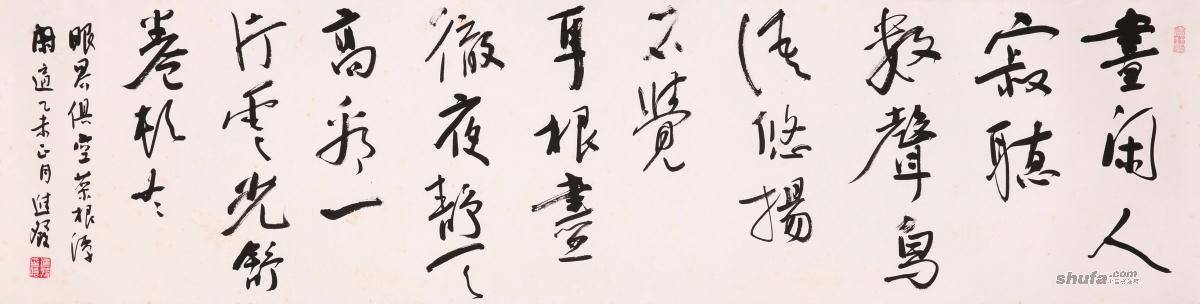 晝闲人
寂聽
數聲鳥
語悠揚
不覺
耳根盡
徹夜靜天
高看一
片雲光舒
卷頓令
眼界俱空菜根譚
閑適乙未正月
shufa.com